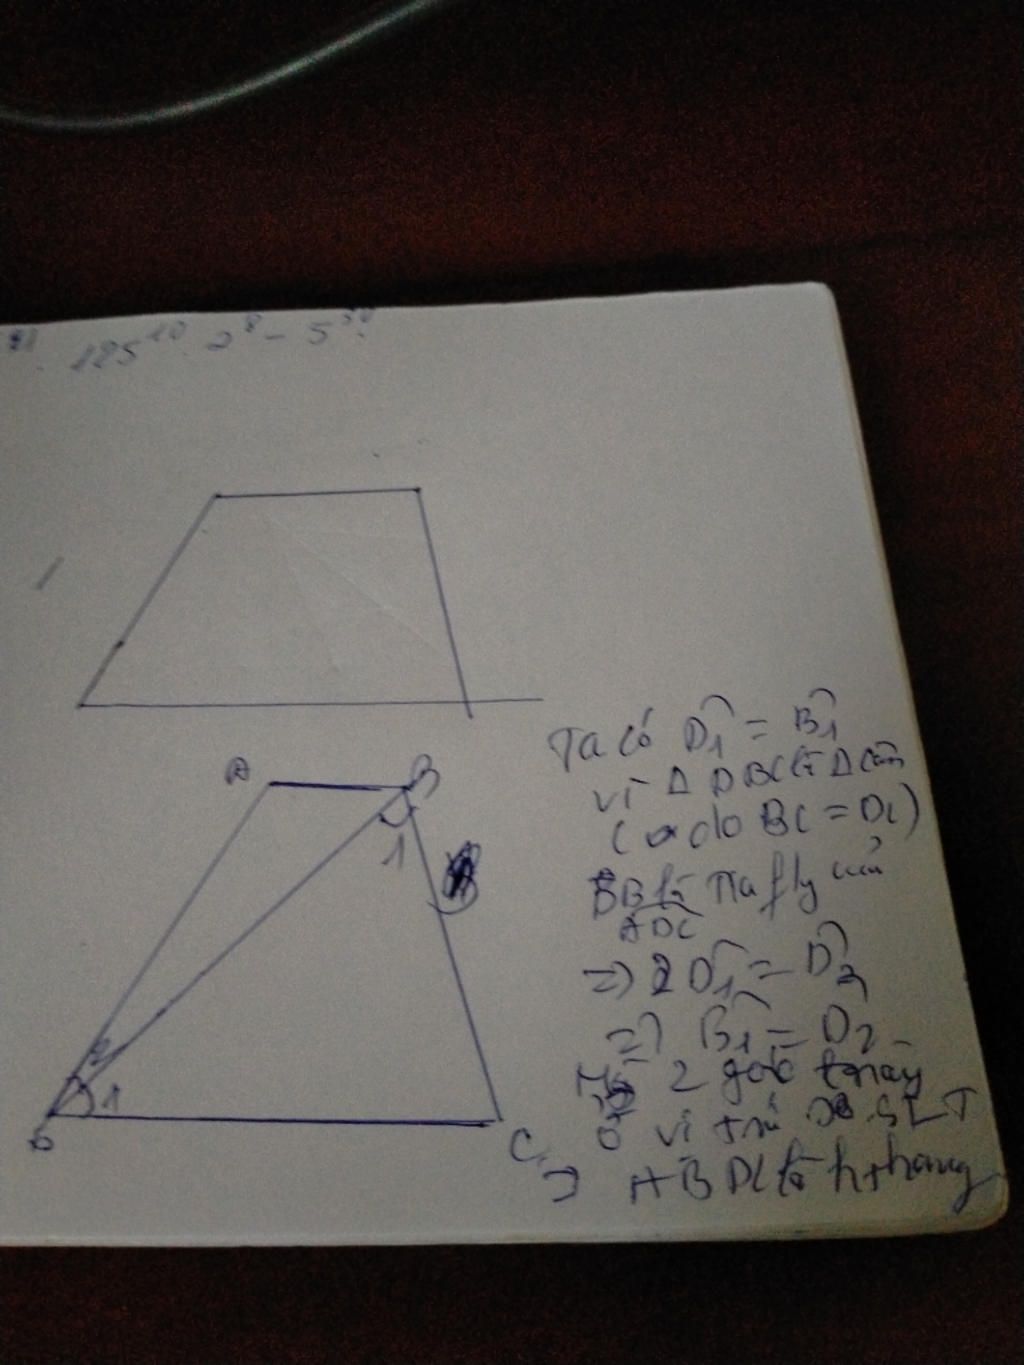 125¹⁰. 2⁸ - 5³⁰.
A
B
1
2
1
D
C
Ta có D̂1 = B̂1
vì Δ DBC là Δ cân
( do BC = DC)
DB là tia f/g của
ADC
=) D̂1 = D̂2
=) B̂1 = D̂2
Mà 2 góc này
ở vị trí SLT
=) ABDC là h thang